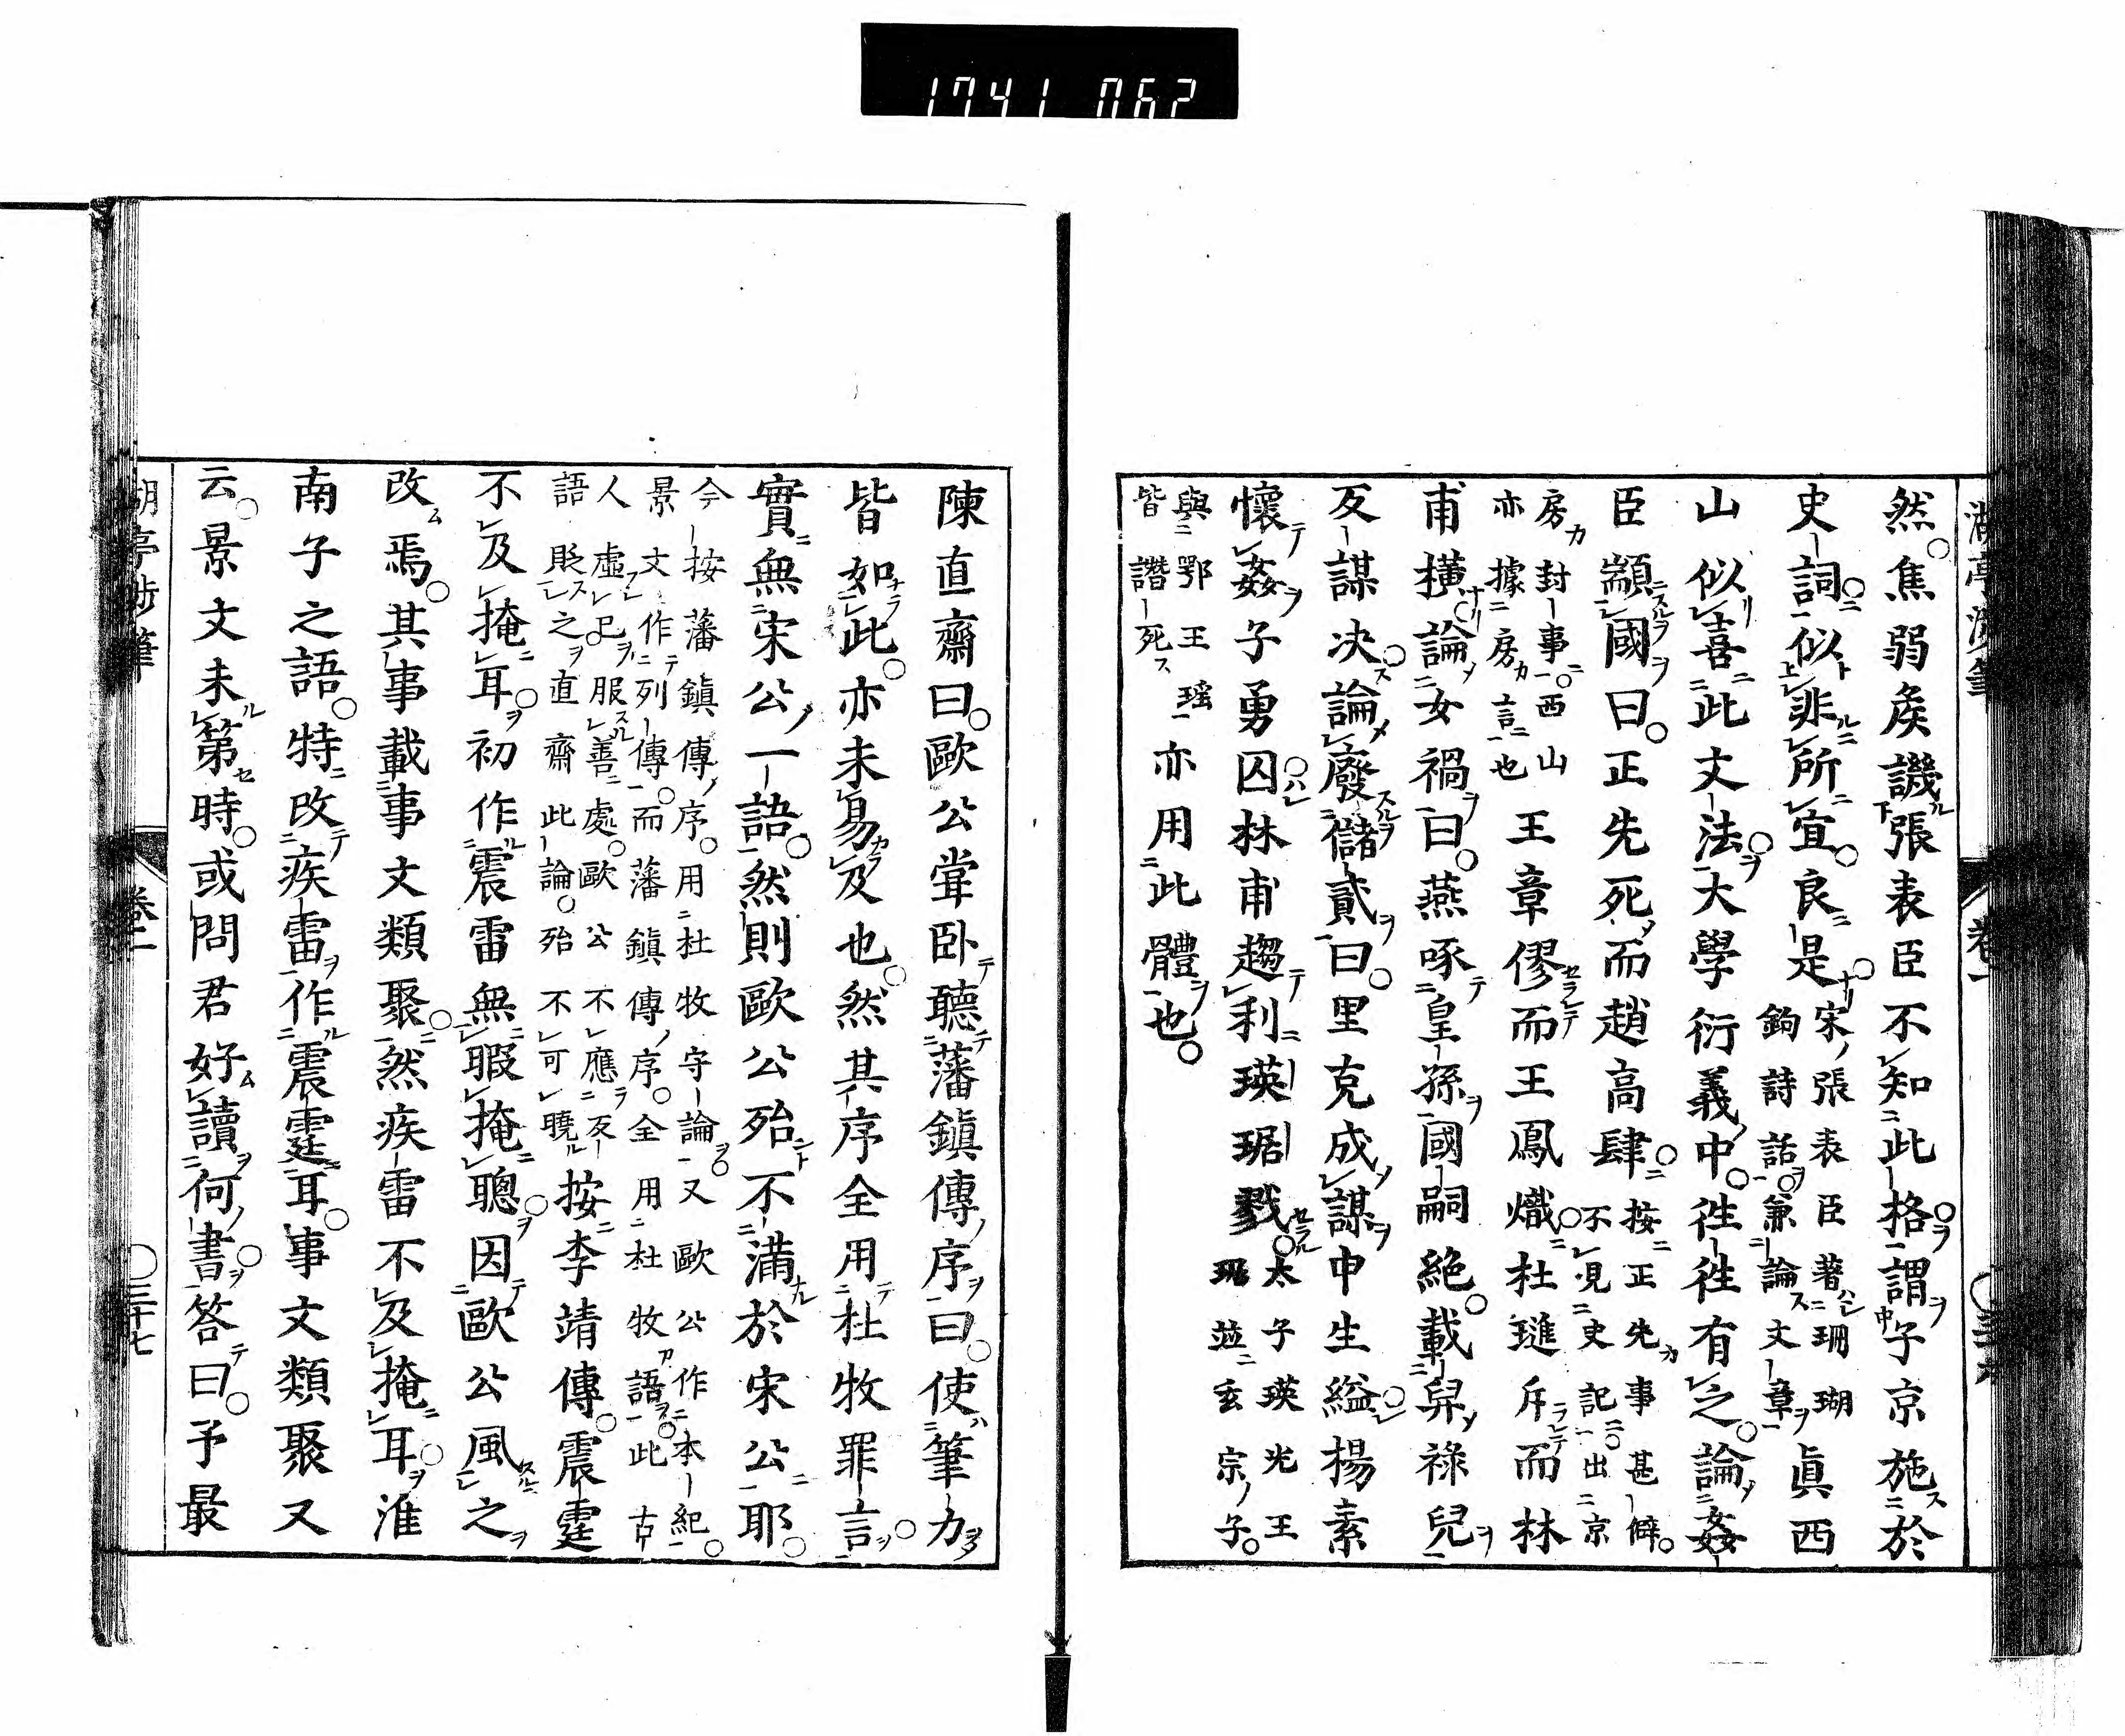 1741 062
然焦弱矦譏張表臣不知此格謂子京施於
史詞似非所宜良是
宋張表臣著珊瑚
鉤詩話兼論文章
眞西
山似喜此文法大學衍義中徃徃有之論姦
臣顓國曰正先死而趙高肆
按正先事甚僻
不見史記出京
房封事西山
亦據房言也
王章僇而王鳳熾杜璡斥而林
甫橫論女禍曰燕啄皇孫國嗣絶載舁祿兒
反謀決論廢儲貳曰里克成謀申生縊楊素
懷姦子勇囚林甫趨利瑛琚戮
太子瑛光王
琚竝玄宗子
與鄂王瑶
皆譖死
亦用此體也
陳直齋曰歐公甞臥聽藩鎭傳序曰使筆力
皆如此亦未易及也然其序全用杜牧罪言
實無宋公一語然則歐公殆不滿於宋公耶
今按藩鎭傳序用杜牧守論又歐公作本紀
景文作列傳而藩鎭傳序全用杜牧語此古
人虛已服善處歐公不應反
語貶之直齋此論殆不可曉
按李靖傳震霆
不及掩耳初作震雷無暇掩聰因歐公風之
改焉其事載事文類聚然疾雷不及掩耳淮
南子之語特改疾雷作震霆耳事文類聚又
云景文未第時或問君好讀何書答曰予最
湖亭渉筆
卷二
三十七